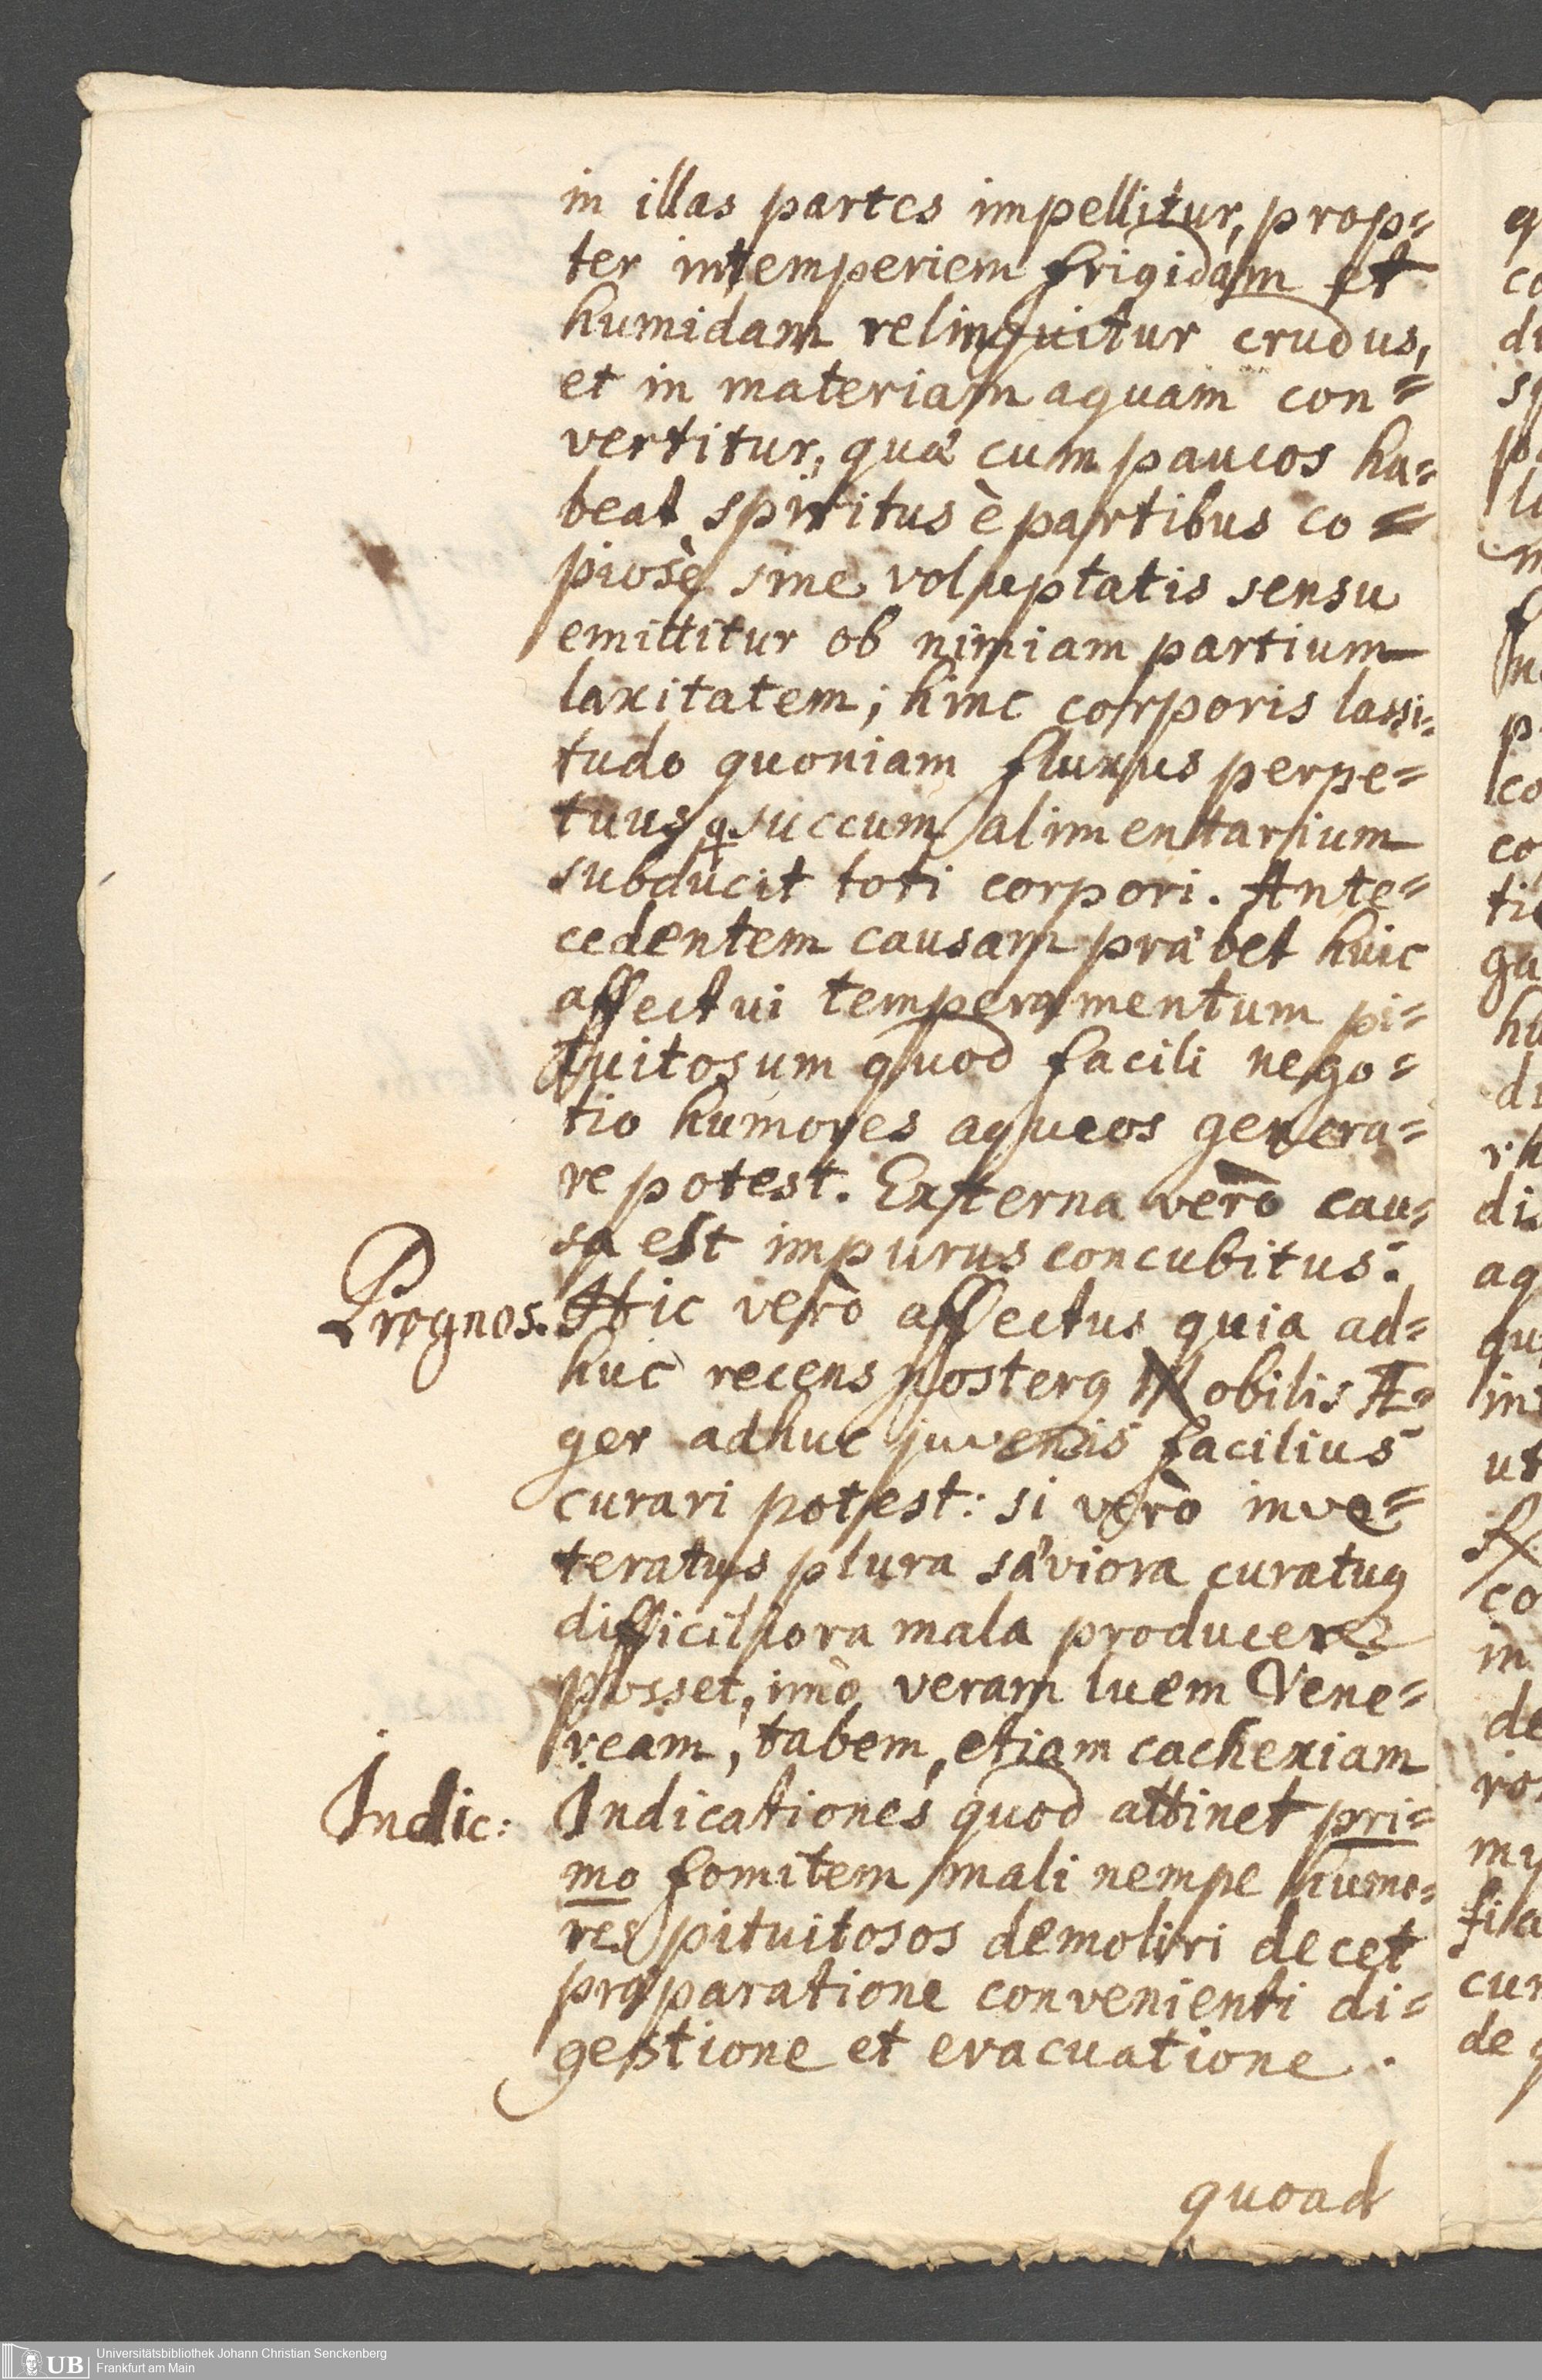 in illas partes impellitur, prop=
ter intemperiem frigidam et
humidam relinquitur crudus,
et in materiam aquam con=
vertitur, quæ cum paucos ha=
beat spiritus è partibus co=
piosè sine voluptatis sensu
emittitur ob nimiam partium
laxitatem; hinc corporis lassi=
tudo quoniam fluxus perpe=
tuus succum alimentarium
subducit toti corpori. Ante=
cedentem causam præbet huic
affectui temperamentum pi=
tuitosum quod facili nego=
tio humores aqueos genera=
re potest. Externa verò cau=
sa est impurus concubitus.
Prognos. Hic verò affectus quia ad=
huc recens nosterq Nobilis Æ=
ger adhuc juvenis facilius
curari potest: si verò inve=
teratus plura sæviora curatuq
difficiliora mala producere
posset, imò veram luem Vene=
ream, tabem, etiam cachexiam
Indic: Indicationes quod attinet pri=
mo fomitem mali nempe humo=
res pituitosos demoliri decet
præparatione convenienti di=
gestione et evacuatione.
quoad
UB Universitätsbibliothek Johann Christian Senckenberg
Frankfurt am Main